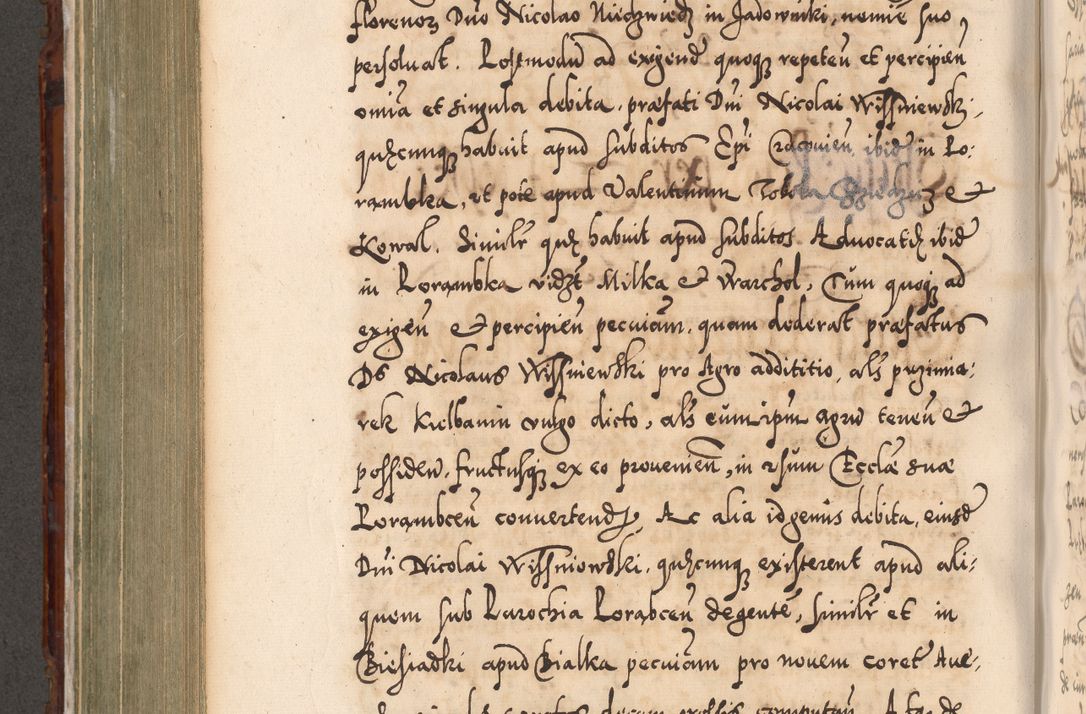 florenoꝝ Dno Nicolao Niedzwiedz in Jadowniki, nomie suo,
persoluat. Postmodu ad exigend quoqꝫ repeteñ et percipień
omia et singula debita, præfati Dni Nicolai Wissniewski,
quæcunqꝫ habuit apud subditos Epi Cracouień ibid in Po-
rambka, ut pote apud Valentinum et
Kowal. Similr quæ habuit apud subditos Aduocatiæ ibid
in Porambka vidzt Milka et Warchol, Cum quoqꝫ ad
exigeń et percipień pecuiam, quam dederat præfatus
Ds Nicolaus Wissniewski pro Agro addititio, als przimia-
rek Kielbanin vulgo dicto, als eum ipm agru teneń et
possideń, fructusqꝫ ex eo prouenieñ, in vsum Ecclæ suæ
Porambceń conuertend, Ac alia id genus debita, eiusd
Dni Nicolai Wissniowski, quæcunqꝫ existerent apud ali-
quem sub Parochia Porabceń degente, similr et in
Biesiadki apud Bialka pecuiam pro nouem coret Aue-
decem